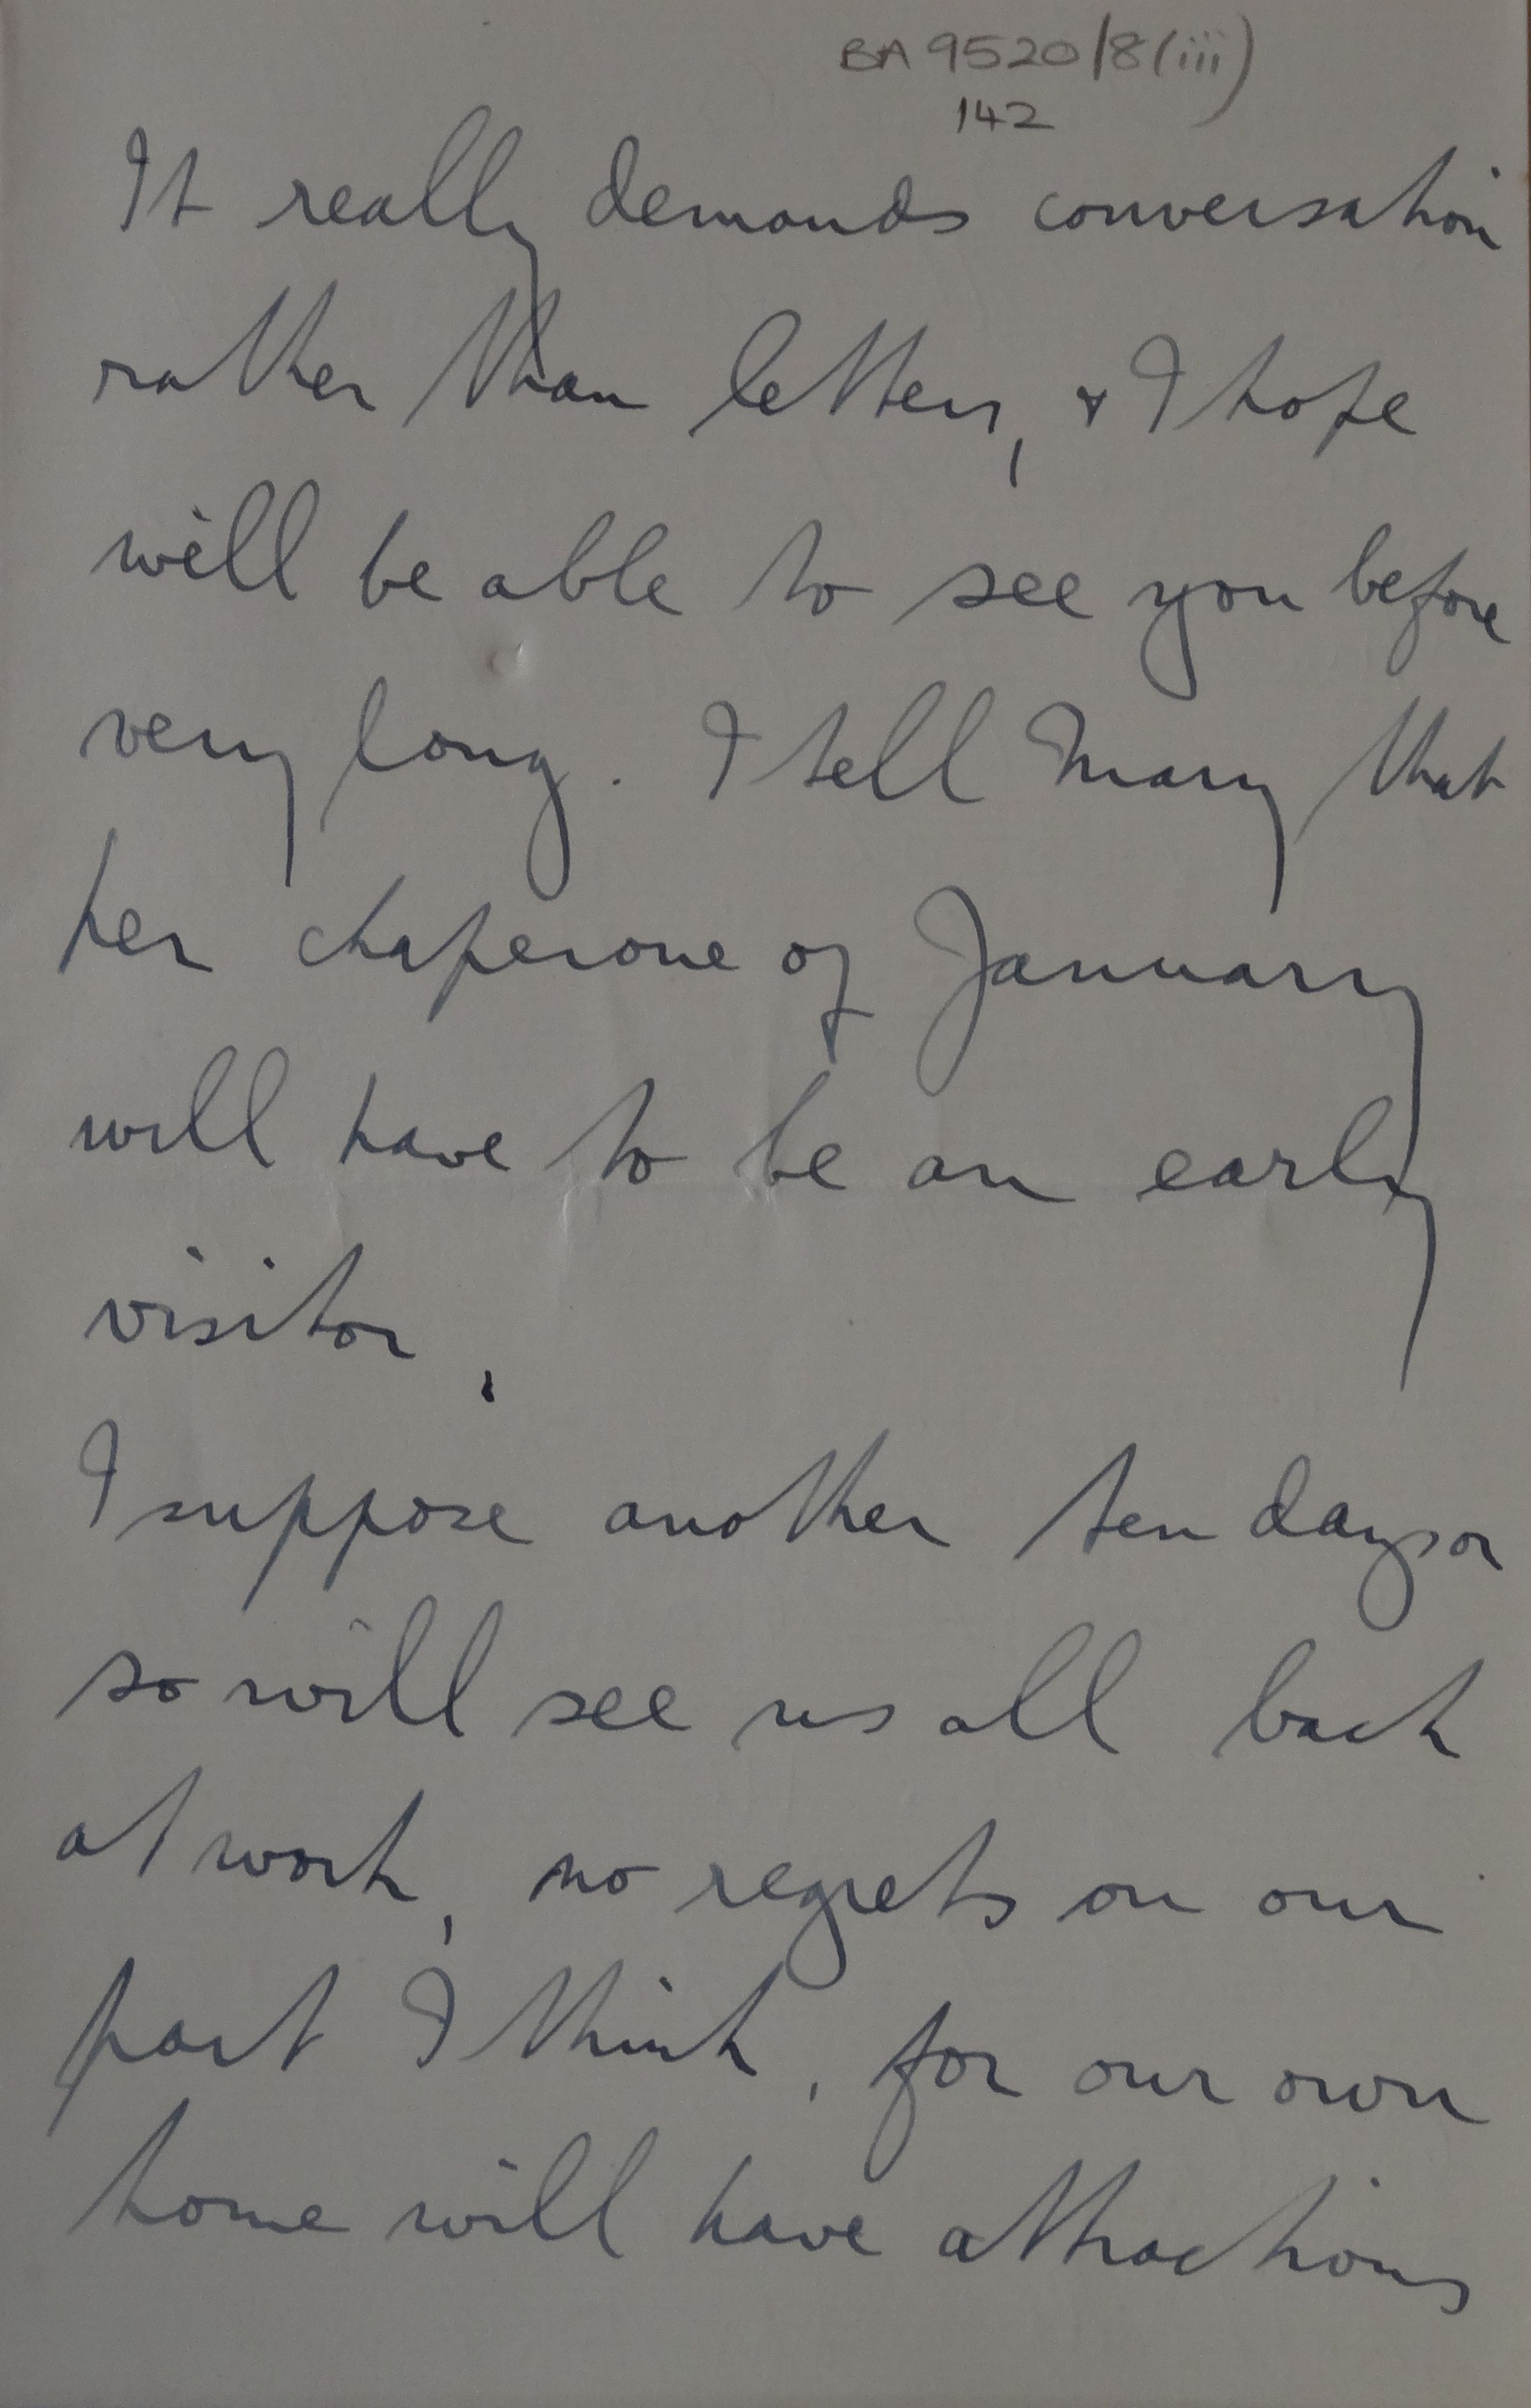 BA 9520/8(iii)
142
It really demands conversation
rather than letters, & I hope
will be able to see you before
very long. I tell Mary that
her chaperone of January
will have to be an early
visitor.
I suppose another ten days or
so will see us all back
at work, no regrets on our
part I think, for our own
home will have attractions